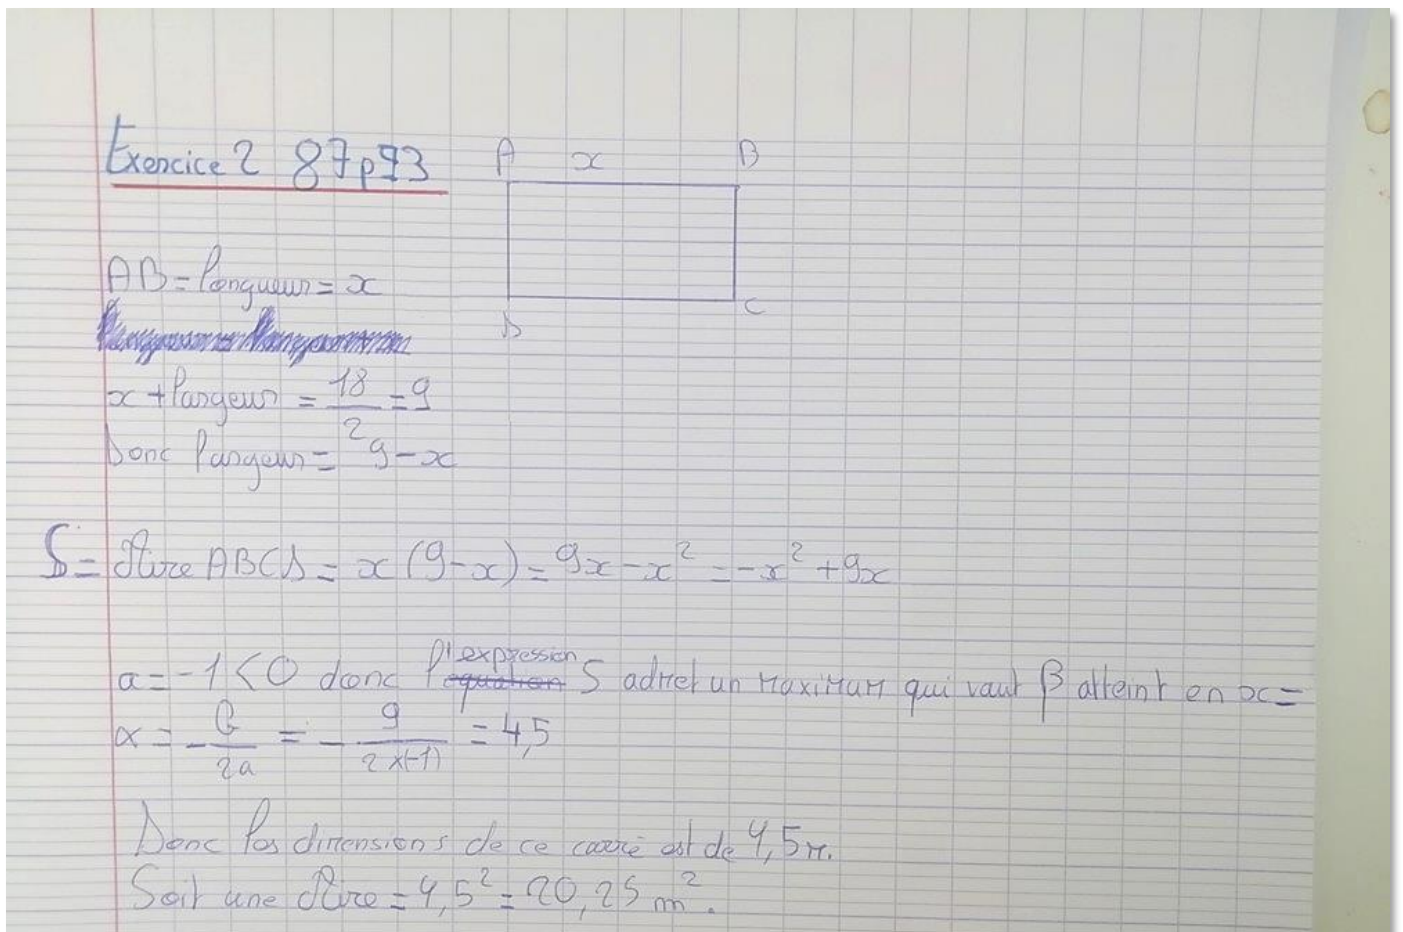 Exercice 2 87p73
A x B
D C
AB = longueur = x
x + largeur = 18/2 = 9
Donc largeur = 9-x
S = Aire ABCD = x(9-x) = 9x-x² = -x²+9x
a = -1 < 0 donc l'expression S admet un maximum qui vaut β atteint en x =
α = -b/2a = -9/2×(-1) = 4,5
Donc les dimensions de ce carré est de 4,5m.
Soit une Aire = 4,5² = 20,25 m².